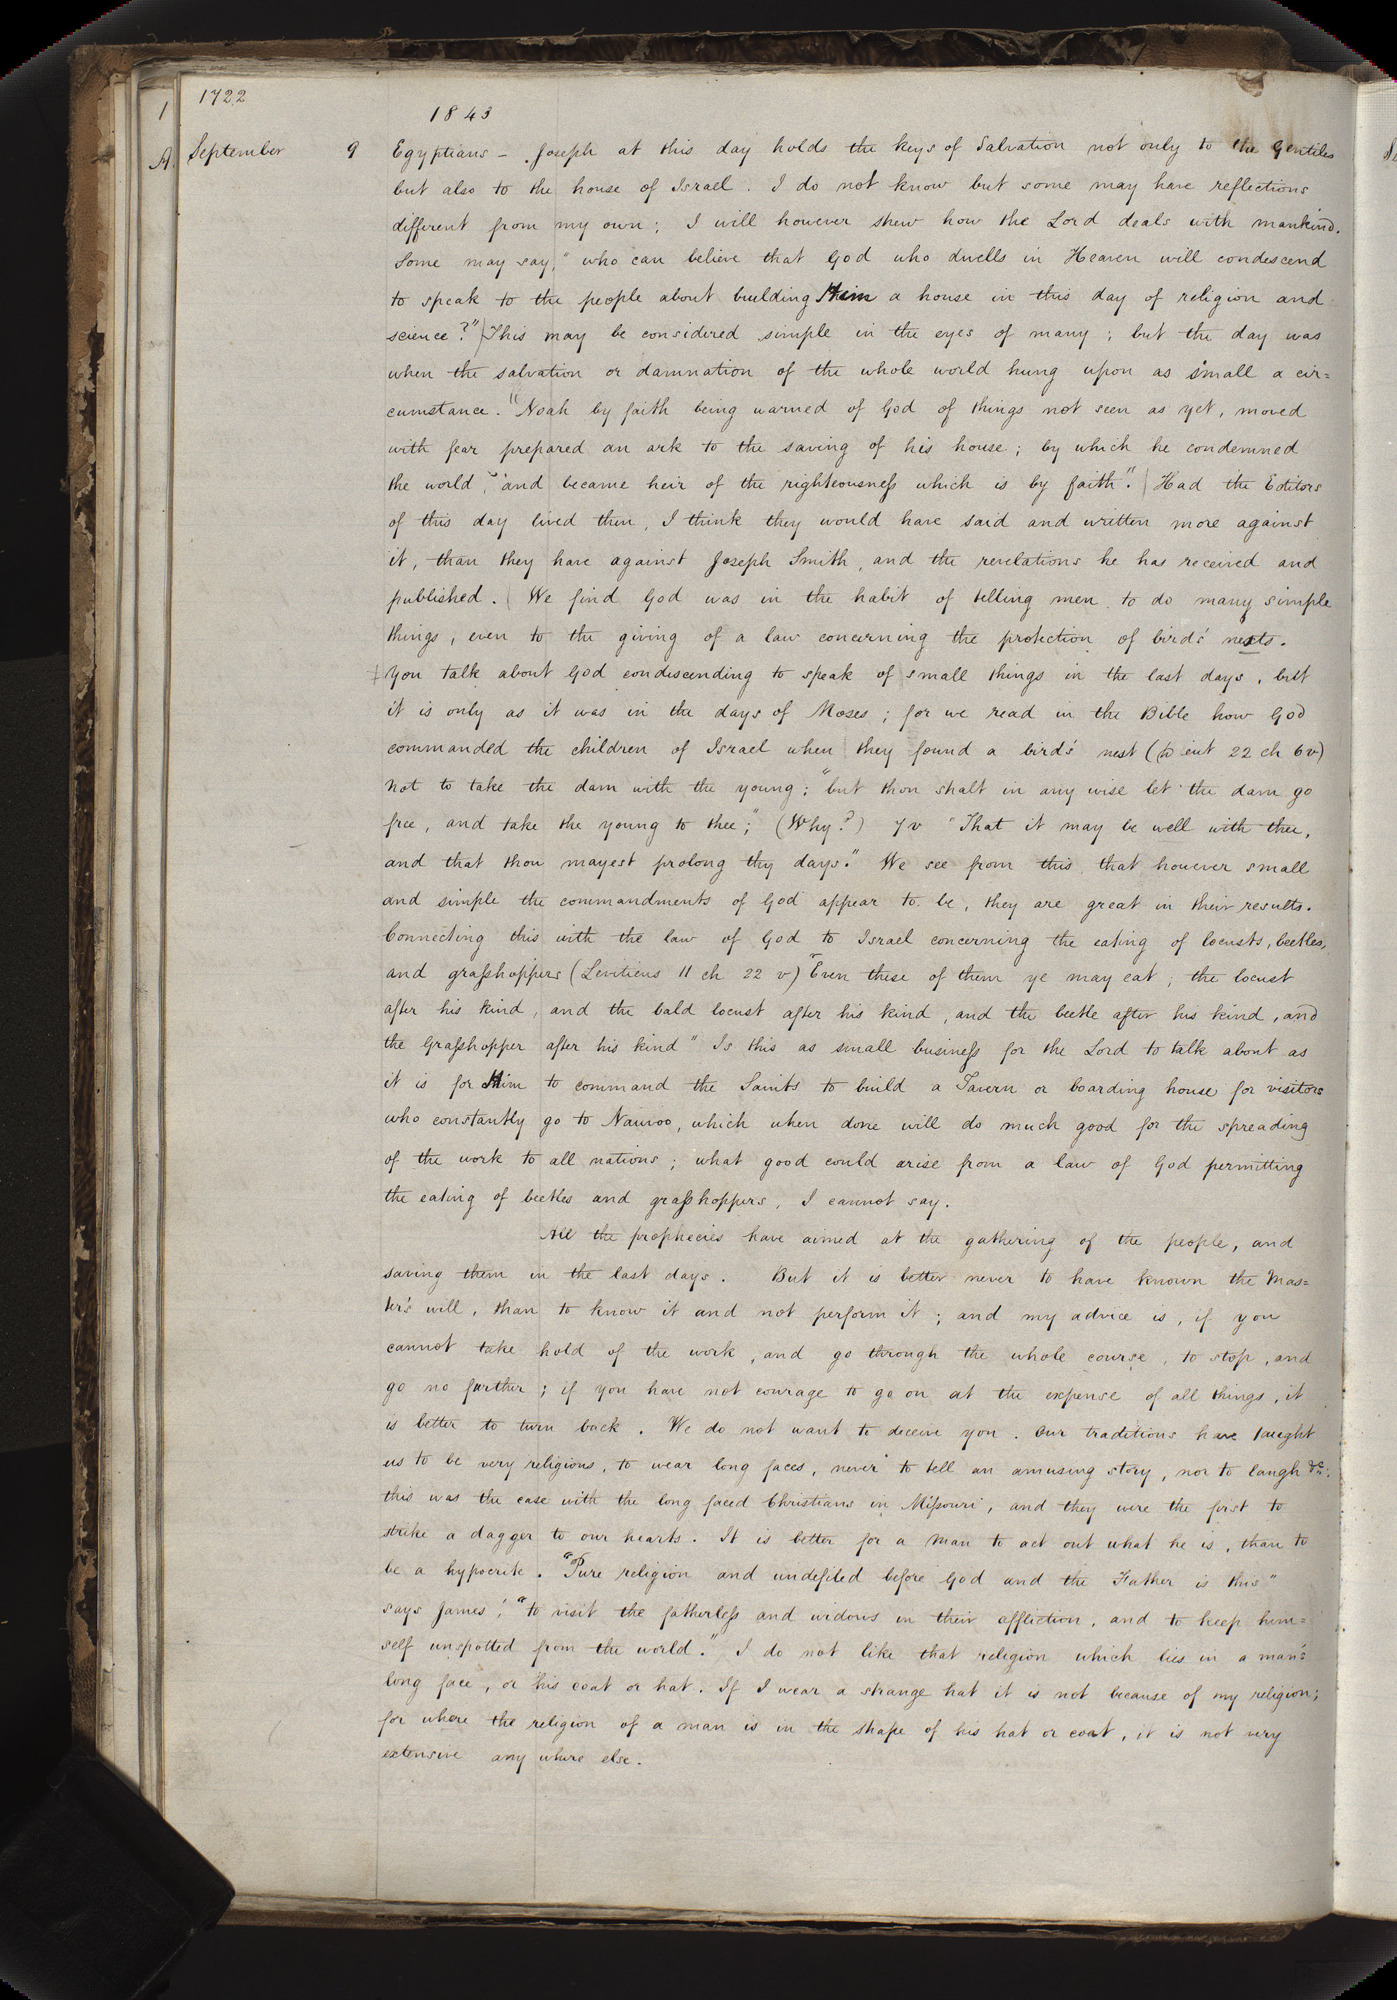 1722
1843
September 9 Egyptians – Joseph at this day holds the keys of Salvation not only to the Gentiles
but also to the house of Israel. I do not know but some may have reflections
different from my own; I will however shew how the Lord deals with mankind.
Some may say, "who can believe that God who dwells in Heaven will condescend
to speak to the people about building Him a house in this day of religion and
science?" This may be considered simple in the eyes of many; but the day was
when the salvation or damnation of the whole world hung upon as small a cir=
cumstance. "Noah by faith being warned of God of things not seen as yet, moved
with fear prepared an ark to the saving of his house; by which he condemned
the world, and became heir of the righteousness which is by faith". Had the Editors
of this day lived then, I think they would have said and written more against
it, than they have against Joseph Smith, and the revelations he has received and
published. We find God was in the habit of telling men to do many simple
things, even to the giving of a law concerning the protection of bird's nests.
You talk about God condescending to speak of small things in the last days, but
it is only as it was in the days of Moses; for we read in the Bible how God
commanded the children of Israel when they found a bird's nest (Deut 22 ch 6 v)
not to take the dam with the young; "but thou shalt in any wise let the dam go
free, and take the young to thee;" (Why?) 7 v "That it may be well with thee,
and that thou mayest prolong thy days." We see from this, that however small
and simple the commandments of God appear to be, they are great in their results.
Connecting this with the law of God to Israel concerning the eating of locusts, beetles,
and grasshoppers (Leviticus 11 ch 22 v) "Even these of them ye may eat; the locust
after his kind, and the bald locust after his kind, and the beetle after his kind, and
the Grasshopper after his kind" Is this as small business for the Lord to talk about as
it is for Him to command the Saints to build a Tavern or boarding house for visitors
who constantly go to Nauvoo, which when done will do much good for the spreading
of the work to all nations; what good could arise from a law of God permitting
the eating of beetles and grasshoppers, I cannot say.
All the prophecies have aimed at the gathering of the people, and
saving them in the last days. But it is better never to have known the Mas=
ter's will, than to know it and not perform it; and my advice is, if you
cannot take hold of the work, and go through the whole course, to stop, and
go no further; if you have not courage to go on at the expense of all things, it
is better to turn back. We do not want to deceive you. Our traditions have taught
us to be very religious, to wear long faces, never to tell an amusing story, nor to laugh &c.
this was the case with the long faced Christians in Missouri, and they were the first to
strike a dagger to our hearts. It is better for a man to act out what he is, than to
be a hypocrite. "Pure religion and undefiled before God and the Father is this"
says James, "to visit the fatherless and widows in their affliction, and to keep him=
self unspotted from the world." I do not like that religion which lies in a man's
long face, or his coat or hat. If I wear a strange hat it is not because of my religion;
for where the religion of a man is in the shape of his hat or coat, it is not very
extensive any where else.